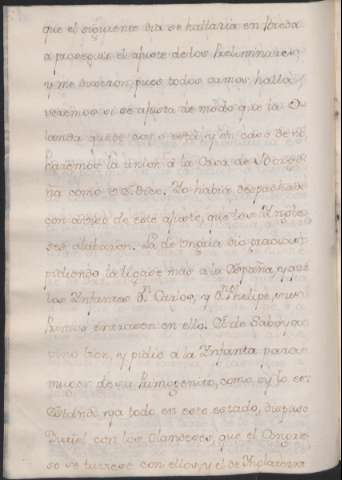 que el siguiente dia se hallaria en Breda
a proseguir el ajuste de los Preliminares,
y me dixeron, pues todos vamos halla,
veremos si se ajusta de modo que la Ô
landa quede con 
haremos la union á la Casa de 
ña como Yo habia despachado
con de este ajuste, que los Yngle
ses alabaron. La de Ungria dio gracias,
pidiendo la ligase mas a la España, y que
los Ynfantes Dn. Carlos, y Dn. Phelipe, sus
entrasen en ello. El de Saboya
vino bien, y pidio a la Ynfanta para
muger de su Primogenito, como oy lo es.
Estando ya todo en este estado, dispuso
con los Olandeses, que el Congre
so se tuviese con ellos, y el de Ynglaterra